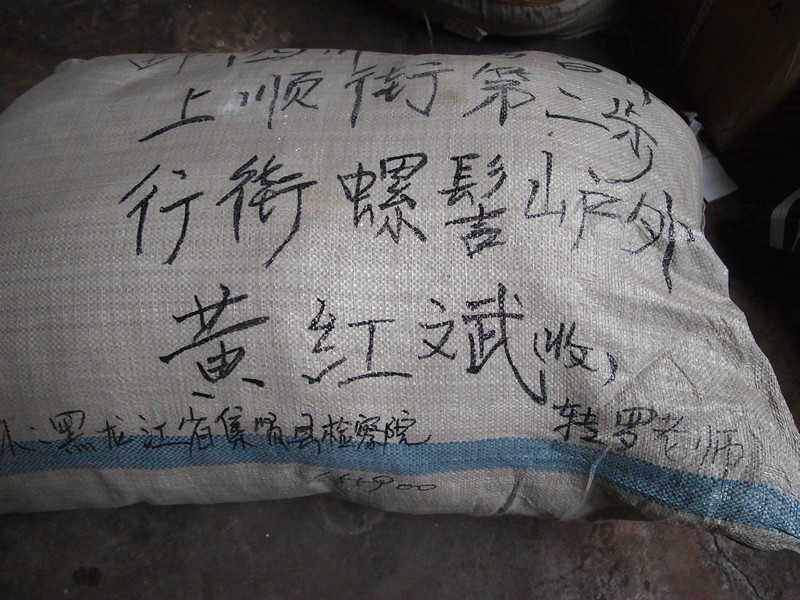 上顺街第二步
行街螺髻山户外
黄红斌(收)
转罗老师
黑龙江省集贤县检察院